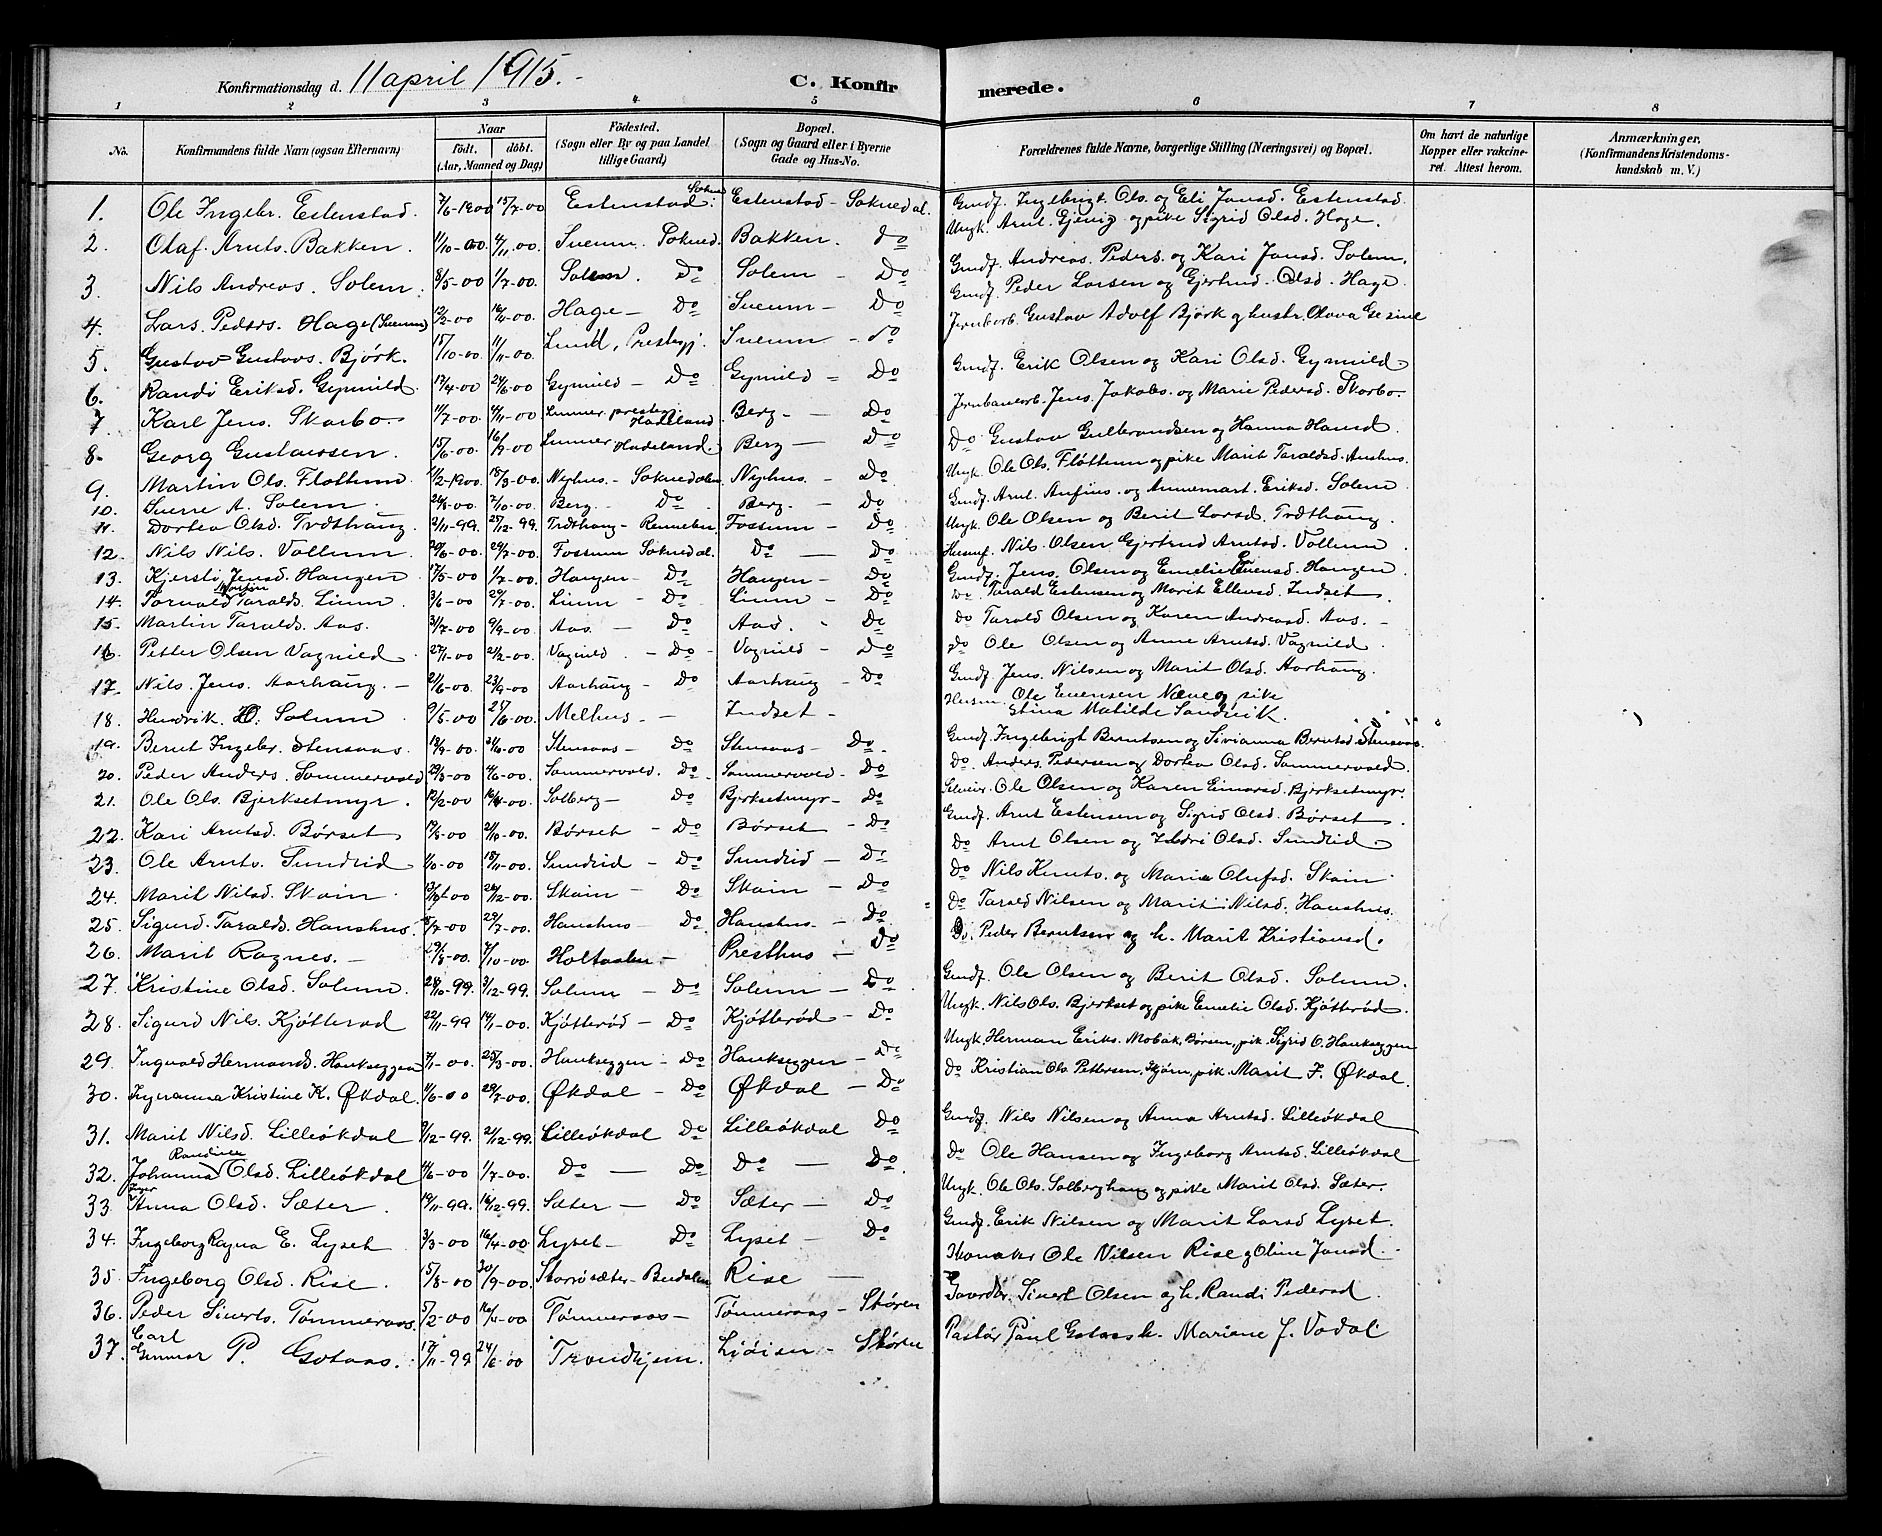 Konfirmationsdag d. 11 april 1915.
C. Konfirmerede.
1 2 3 4 5 6 7 8
No. Konfirmandens fulde Navn (ogsaa Efternavn) Naar Födt. döbt. (Aar, Maaned og Dag) Födested. (Sogn eller By og paa Landet tillige Gaard) Bopæl. (Sogn og Gaard eller i Byerne Gade og Hus-No. Forældrenes fulde Navne, borgerlige Stilling (Næringsvei) og Bopæl. Om havt de naturlige Kopper eller vakcineret. Attest herom. Anmærkninger. (Konfirmandens Kristendomskundskab m. V.)
1. Ole Ingebr. Estenstad. 7/6-1900 15/7-00 Estenstad. Soknd Estenstad - Soknedal. Grdf. Ingebrigt Ols. og Eli Jonsd. Estenstad.
2. Olaf Arnts. Bakken. 11/10-00. 4/11.00. Sveum. Soknd. Bakken. do Ungk. Arnt Gjevig og pike Sigrid Olsd. Hage.
3. Nils Andreas. Solem. 8/5-00 1/7-00. Solem. Do Solem - Do Grdf. Andreas Peders. og Kari Jonsd. Solem.
4. Lars. Peders. Hage (Sveum) 12/2-00 16/4-00. Hage - Do Sveum - Do Grdf. Peder Larsen og Gjertrud. Olsd. Hage.
5. Gustav Gustavs. Björk. 15/10-00. 11/11-00. Lund, Prestegj. Sveum - Do Jernbarb. Gustav Adolf Björk og hustr. Olava Gesine
6. Randi Eriksd. Gynnild. 17/4-00 24/6-00 Gynnild - Do Gynnild - Do Grdf. Erik Olsen og Kari Olsd. Gynnild
7. Karl Jens. Skarbo. 11/7-00. 4/11-00 Lunner prestegj. Hadeland Berg - Do Jernbanearb. Jens. Jakobs. og Marie Pedersd. Skarbo.
8. Georg Gustavssen. 15/6-00. 16/9-00 Lunner Hadeland. Berg - Do Do Gustav Gulbrandsen og Hanna Hansd.
9. Martin Ols. Flöttum 11/2-1900 18/3-00. Nyhus. - Soknedalen Nyhus. - Do Ungk. Ole Ols. Flöttum og pike Marit Taraldsd. Aashus.
10. Sverre A. Solem. 26/8-00. 7/10-00. Berg. Do Berg. - Do Grdf. Arnt. Anfins. og Annemart. Eriksd. Solem
11. Dortea Olsd. Trötthaug. 2/11-99. 25/12-99. Trötthaug - Rennebu Fossum - Do Ungk. Ole Olsen og Berit Larsd. Trötthaug.
12. Nils Nils. Vollum. 20/6-00 29/7-00. Fossum Soknedal. Do - Do Husmf. Nils. Olsen Gjertrud Arntsd. Vollum
13. Kjersti Jensd. Haugen 17/5-00 1/7-00. Haugen - Do Haugen - Do Grdf. Jens. Olsen og Emelie Evensd. Haugen
14. Torvald Taralds. Lium. 3/6-00 29/7-00. Lium - Do Lium - Do Do Tarald Estensen og Marit Ellevsd. Indset.
15. Martin Taralds. Aas. 31/7-00 9/9-00. Aas. - Do Aas. - Do do Tarald Olsen og Karen Andreasd. Aas. -
16. Petter Olsen Vagnild 27/1-00 21/2-00. Vagnild - Do Vagnild - Do do Ole Olsen og Anne Arntsd. Vagnild
17. Nils. Jens. Aarhaug. - 21/6-00. 23/9-00 Aarhaug - Do Aarhaug - Do Grdf. Jens. Nilsen og Marit Olsd. Aarhaug.
18. Hendrik O. Solum. 9/5-00 27/6-00. Melhus. - Indset - Husm. Ole Evensen Næve og pike
Stina Matilde Sandvik.
19. Bernt Ingebr. Stensaas. 19/9-00. 21/10-00 Stensaas - Do Stensaas - Do Grdf. Ingebrigt Berntsen og Sivianna Berntsd Stensaas.
20. Peder Anders. Sommervold 29/3-00 4/6-00 Sommervold. Do Sommervold - Do Do. Anders. Pedersen og Dortea Olsd. Sommervold.
21. Ole Ols. Bjerksetmyr. 12/2-00 16/4-00. Solberg - Do Bjerksetmyr - Do Selveier. Ole Olsen og Karen Einarsd. Bjerksetmyr.
22. Kari Arntsd. Børset 19/8-00 21/10-00. Børset - Do Børset - Do Grdf. Arnt Estensen og Sigrid Olsd. Børset.
23. Ole Arnts. Sundlid 18/11-00. Sundlid - Do Sundlid - Do Do Arnt Olsen og Ildri Olsd. Sundlid
24. Marit Nilsd. Skain. 26/12-00. Skain - Do Skain - Do Do Nils Knuts. og Maria Olufsd. Skain
25. Sigurd Taralds. Haushus. 29/7-00. Haushus - Do Haushus. - Do Do Tarald Nilsen og Marit Nilsd. Haushus.
26. Marit Ragnes. - 7/10-00 Holtaalen - Presthus - Do Do. Peder Berntsen og h. Marit Kristiansd.
27. Kristine Olsd. Solum. 28/10-99. 3/12-99. Solum - Do Solem - Do Grdf. Ole Olsen og Berit Olsd. Solum.
28. Sigurd Nils. Kjötteröd 22/11-99 14/1-00. Kjötteröd - Do Kjötteröd - Do Ungk. Nils Ols. Bjerkset og pike Emelie Olsd. Kjötteröd
29. Ingvald Hermands. Haukseggen 7/1-00. 25/3-00. Haukseggen - Do Haukseggen - Do Ungk Herman Eriks. Mobak, Børsen, pik. Sigrid O. Haukseggen
30. Ingeranna Kristine K. Økdal. 4/6-00 29/7-00. Økdal - Do Økdal - Do Do Kristian Ols Pettersen, Hjörn, pik. Marit J. Økdal.
31. Marit Nilsd. Lilleökdal 21/12-99. Lilleökdal Do Lilleökdal Do Grdf. Nils Nilsen og Anna Arntsd. Lilleökdal
32. Johanna Randine Olsd. Lilleökdal 4/6-00 1/7-00. Do - Do Do - Do. Do Ole Hansen og Ingeborg Arntsd. Lilleökdal
33. Inger Anna Olsd. Sæter. 19/11-99. 16/12-99. Sæter - Do Sæter - Do Ungk. Ole Ols. Solberghaug og pike Marit Olsd. Sæter.
34. Ingeborg Ragna E. Lyset 3/3-00 16/4-00 Lyset - Do Lyset - Do Grdf. Erik Nilsen og Marit Larsd Lyset.
35. Ingeborg Olsd. Rise. 15/8-00 30/9-00. Storrösæter - Budalen Rise - Skomaker Ole Nilsen Rise og Oline Jonsd.
36. Peder Siverts. Tømmeraas. 5/2-00 16/4-00 Tømmeraas - Tømmeraas - Støren Gaardbr. Sivert Olsen og h. Randi Pedersd.
37. Carl Gunnar P. Gotaas. 17/11-99 24/6-00 Trondhjem. Liöien - Støren Pastor Paul Gotaas h. Mariane J. Vodal